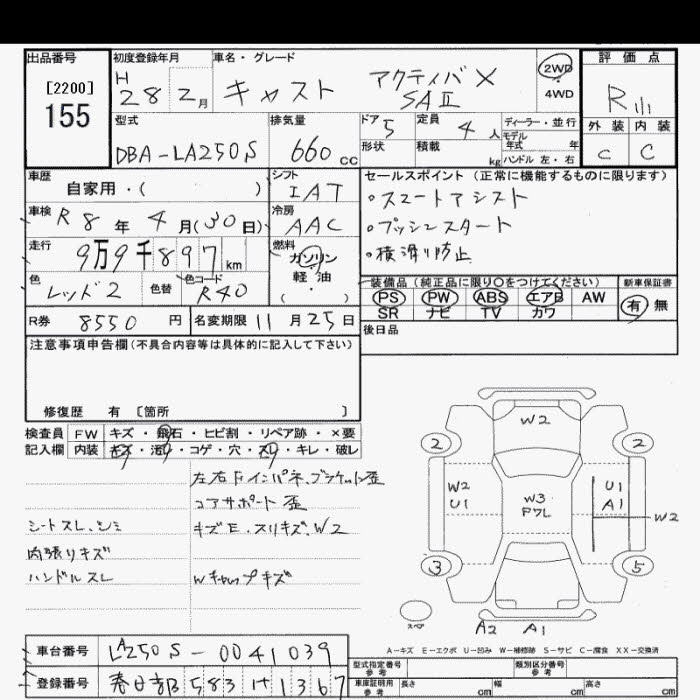 出品番号 初度登録年月 車名・グレード 評価点
[2200] H 28 2月 キャスト アクティバX 2WD
155 SAⅡ 4WD R
型式 排気量 ドア 5 定員 4人 ディーラー・並行 外装 内装
DBA-LA250S 660cc 形状 積載 kg モデル年式 年 C C
ハンドル 左・右
車歴 シフト セールスポイント(正常に機能するものに限ります)
自家用・( ) IAT 。スマートアシスト
車検 R8年4月(30日) 冷房 AAC 。プッシュスタート
走行 9万9千897km 燃料 ガソリン 。横滑り防止
軽・油
( ・ )
色 レッド2 色替 色コード R40 装備品(純正品に限り○をつけてください) 新車保証書
PS PW ABS エアB AW 有 無
SR ナビ TV カワ
R券 8550円 名変期限 11月25日 後日品
注意事項申告欄(不具合内容等は具体的に記入して下さい)
修復歴 有 [箇所 ]
検査員 FW キズ・飛石・ヒビ割・リペア跡・×要
記入欄 内装 キズ・汚れ・コゲ・穴・スレ・キレ・破レ
左右Fインパネ、ブラケット歪
コアサポート歪
シートスレ、シミ キズE・スリキズ、W2
内張りキズ
ハンドルスレ Wキャップキズ
W2
2 2
W2 U1 W3 PフL U1 A1 W2
3 5
スペア A2 A1
A-キズ E-エクボ U-凹み W-補修跡 S-サビ C-腐食 XX-交換済
車台番号 LA250S-0041039
型式指定番号 参考 類別区分番号 参考
登録番号 春日部 583 1367
車庫証明用 参考 長さ cm 幅 cm 高さ cm